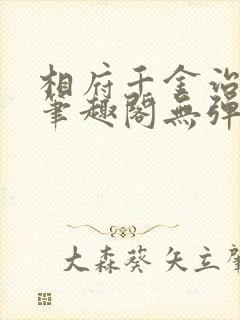 相府千金治
笔趣阁無弹
大森葵 矢立肇